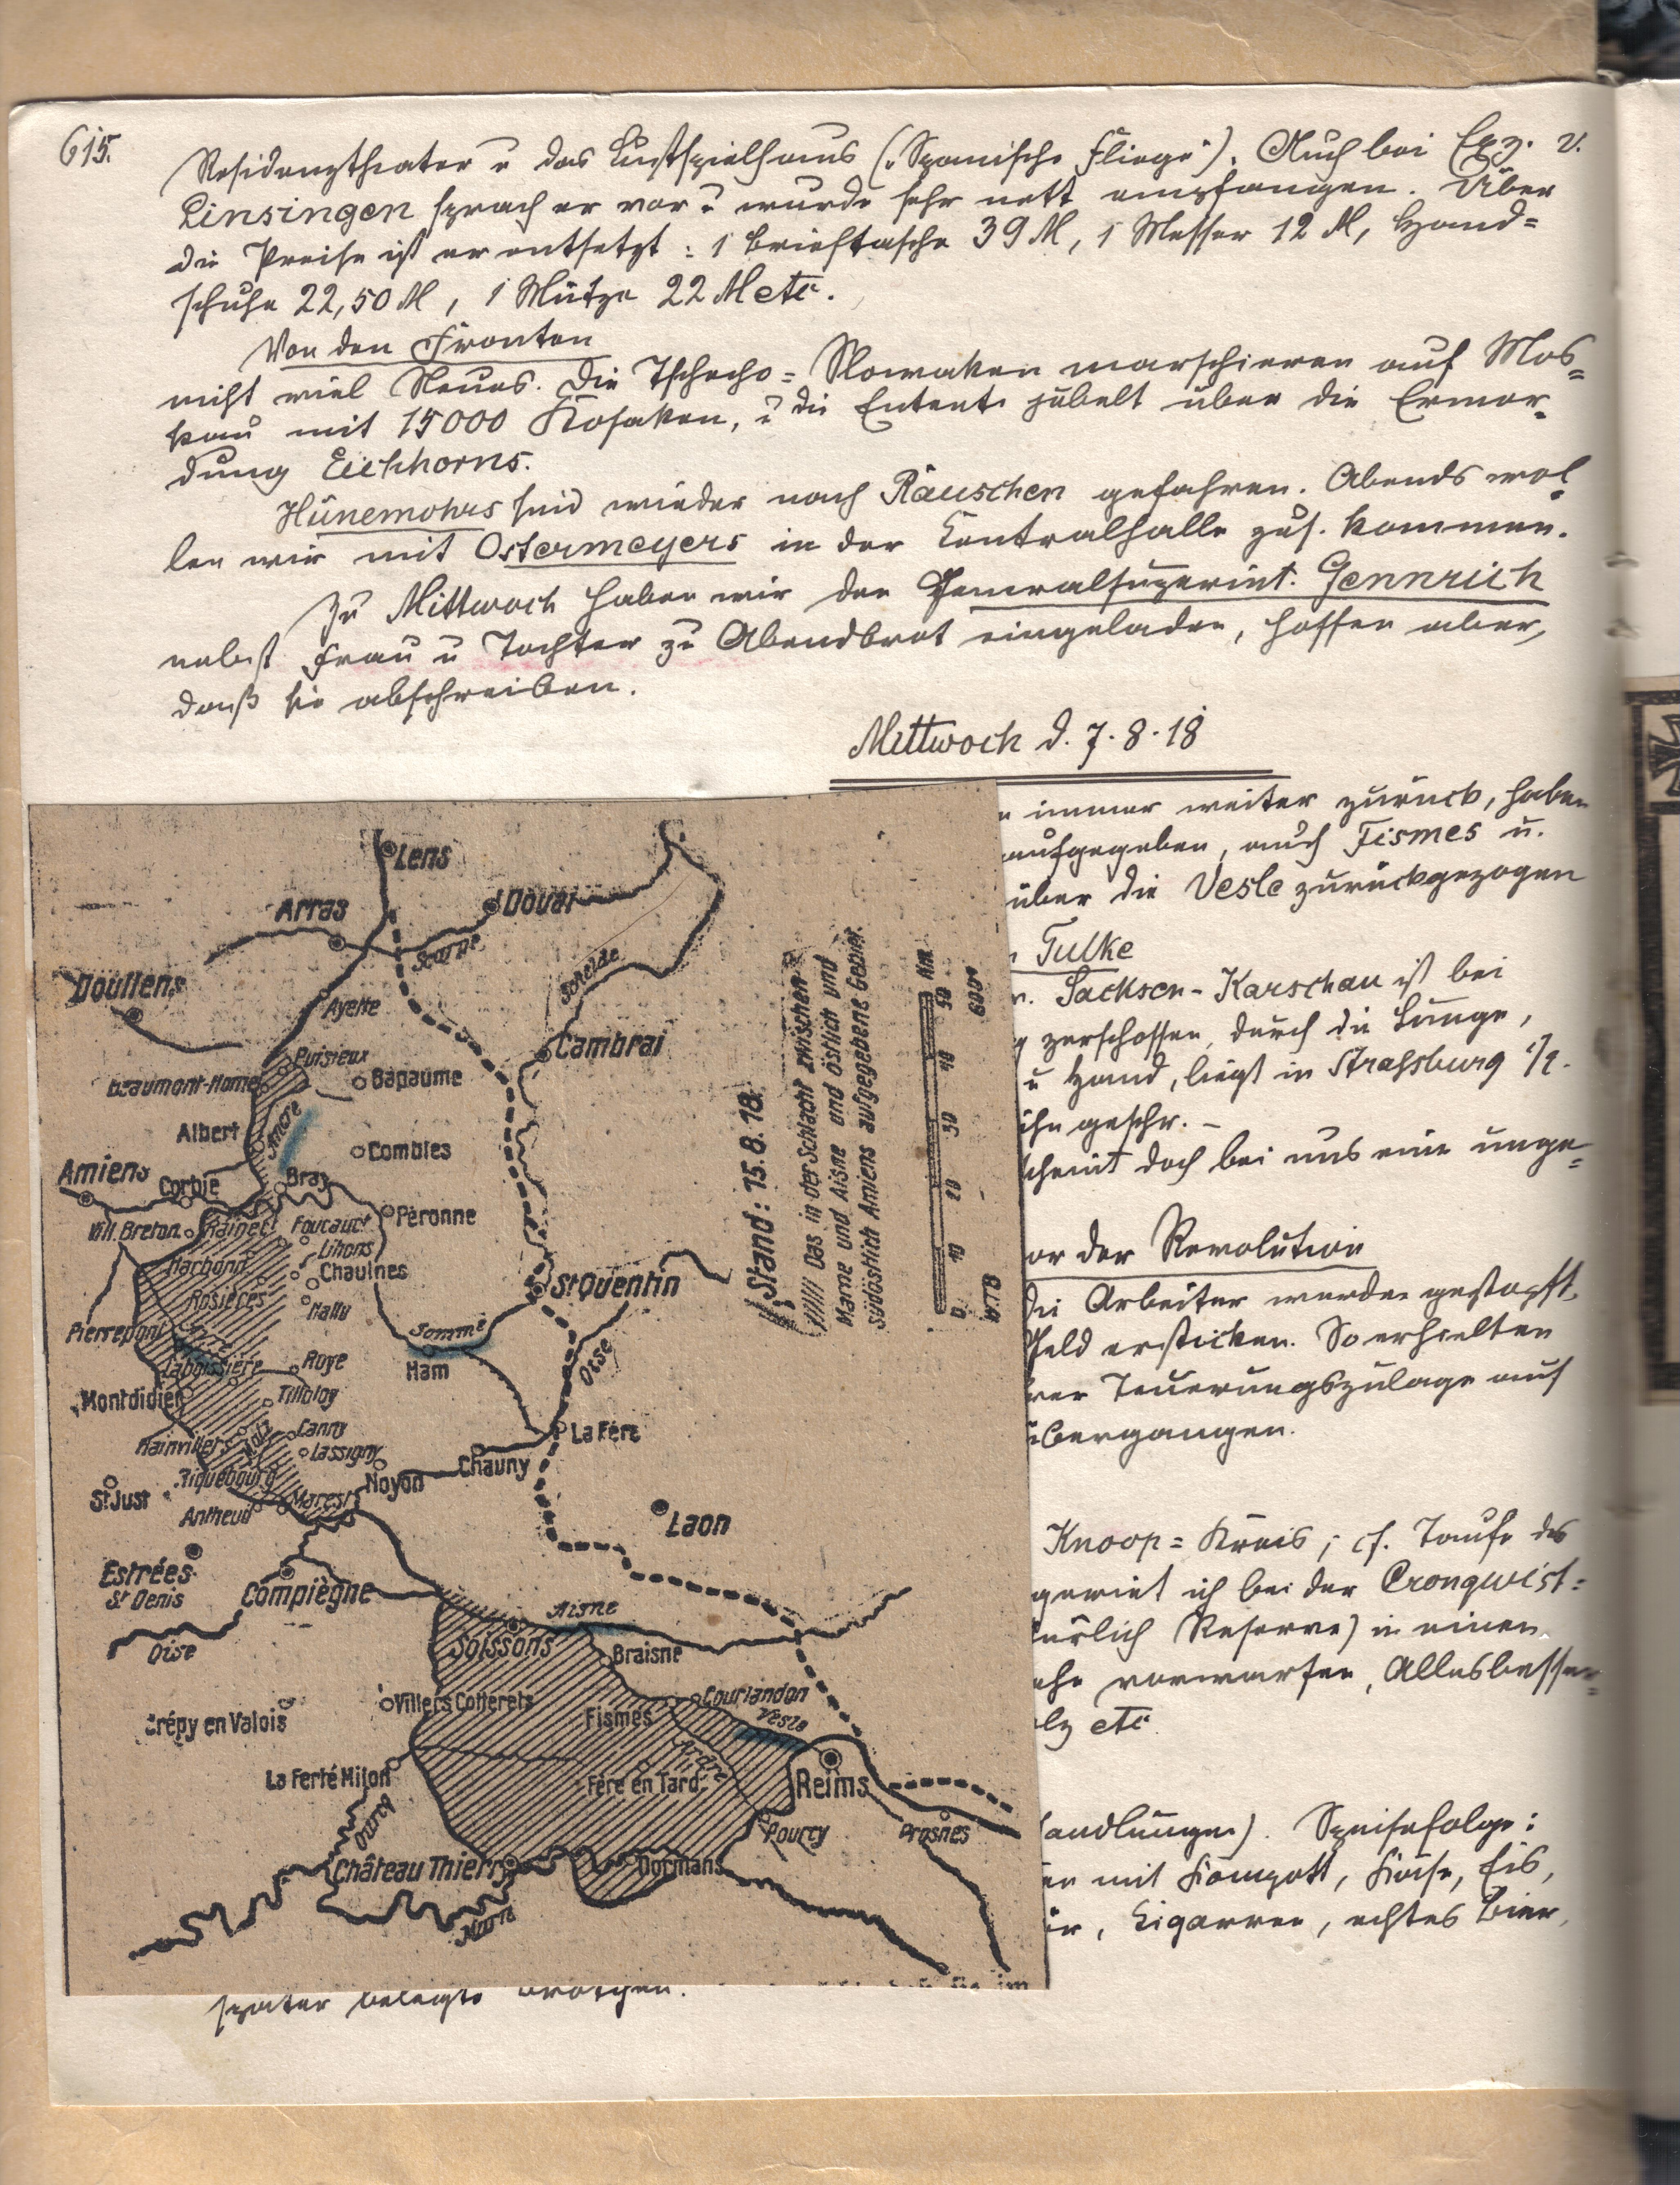 615.
Residenztheater u das Lustspielhaus („Spanische Fliege"). Auch bei Exz. v.
Linsingen sprach er vor u wurde sehr nett empfangen. Über
die Preise ist er entsetzt: 1 Brieftasche 39 M, 1 Messer 12 M, Hand=
schuhe 22,50 M, 1 Mütze 22 M etc.
Von den Fronten
nicht viel Neues. Die Tschecho=Slowaken marschieren auf Mos=
kau mit 15000 Kosaken, u die Entente jubelt über die Ermor-
dung Eichhorns.
Hünemohrs sind wieder nach Rauschen gefahren. Abends wol-
len wir mit Ostermeyers in der Centralhalle zus. kommen.
Zu Mittwoch haben wir den Generalsuperint. Gennrich
nebst Frau u Tochter zu Abendbrot eingeladen, hoffen aber,
daß sie abschreiben.
Mittwoch d. 7.8.18
immer weiter zurück, haben
aufgegeben, auch Fismes u.
über die Vesle zurückgezogen
Tulke
Sacksen-Karschau ist bei
zerschossen, durch die Lunge,
u Hand, liegt in Strassburg i/E.
ihn geschr. –
scheint doch bei uns eine unge=
or der Revolution
die Arbeiter werden gestopft,
Geld ersticken. So erhielten
Teuerungszulage auf
übergangen.
Knoop=Kreis; cf. Taufe des
geriet ich bei der Cronqvist=
türlich Reserve) in einen
vorwarfen, Allesbesser=
etc.
andlungen). Speisefolge:
en mit Kompott, Käse, Eis,
ör, Cigarren, echtes Bier,
später belegte Brötchen.
Lens
Arras
Douai
Scarpe
Schelde
Doullens
Ayette
Cambrai
Puisieux
Beaumont-Hamel
Bapaume
Albert
Ancre
Combles
Amiens
Corbie
Bray
Péronne
Vill. Breton.
Rainec
Foucauct
Lihons
Harbonn
Chaulnes
Rosières
Hallu
St Quentin
Pierrepont
Somme
Laboissière
Roye
Ham
Oise
Montdidier
Tilloloy
Hainvillers
Canny
Lassigny
La Fère
Riquebourg
Noyon
Chauny
St Just
Antheuil
Marest
Laon
Estrées
St Denis
Compiègne
Oise
Aisne
Soissons
Braisne
Villers Cotterets
Courlandon
Crépy en Valois
Fismes
Vesle
Ardre
La Ferté Milon
Fère en Tard.
Reims
Ourcq
Pourcy
Prosnes
Château Thierry
Dormans
Marne
Stand: 15. 8. 18.
Das in der Schlacht zwischen
Marne und Aisne und östlich und
südöstlich Amiens aufgegebene Gebiet.
0 10 20 30 40 50 Km.
W.T.B. 600a